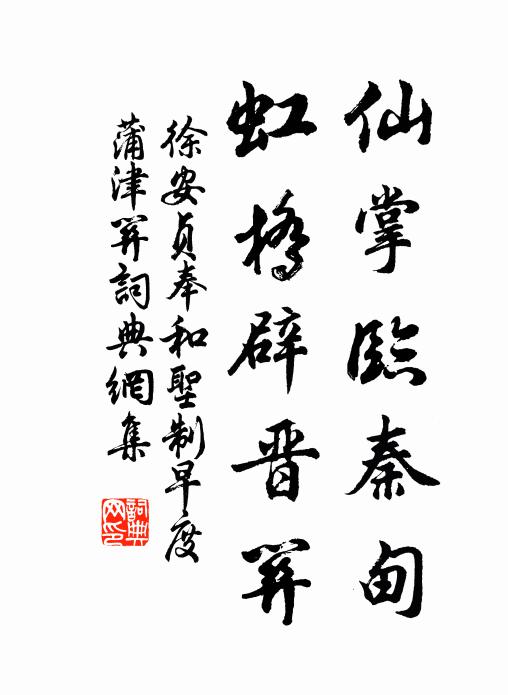 仙掌臨秦甸
虹橋辟晉關
徐安貞奉和聖制早度
蒲津關詞典網集
詞典網印